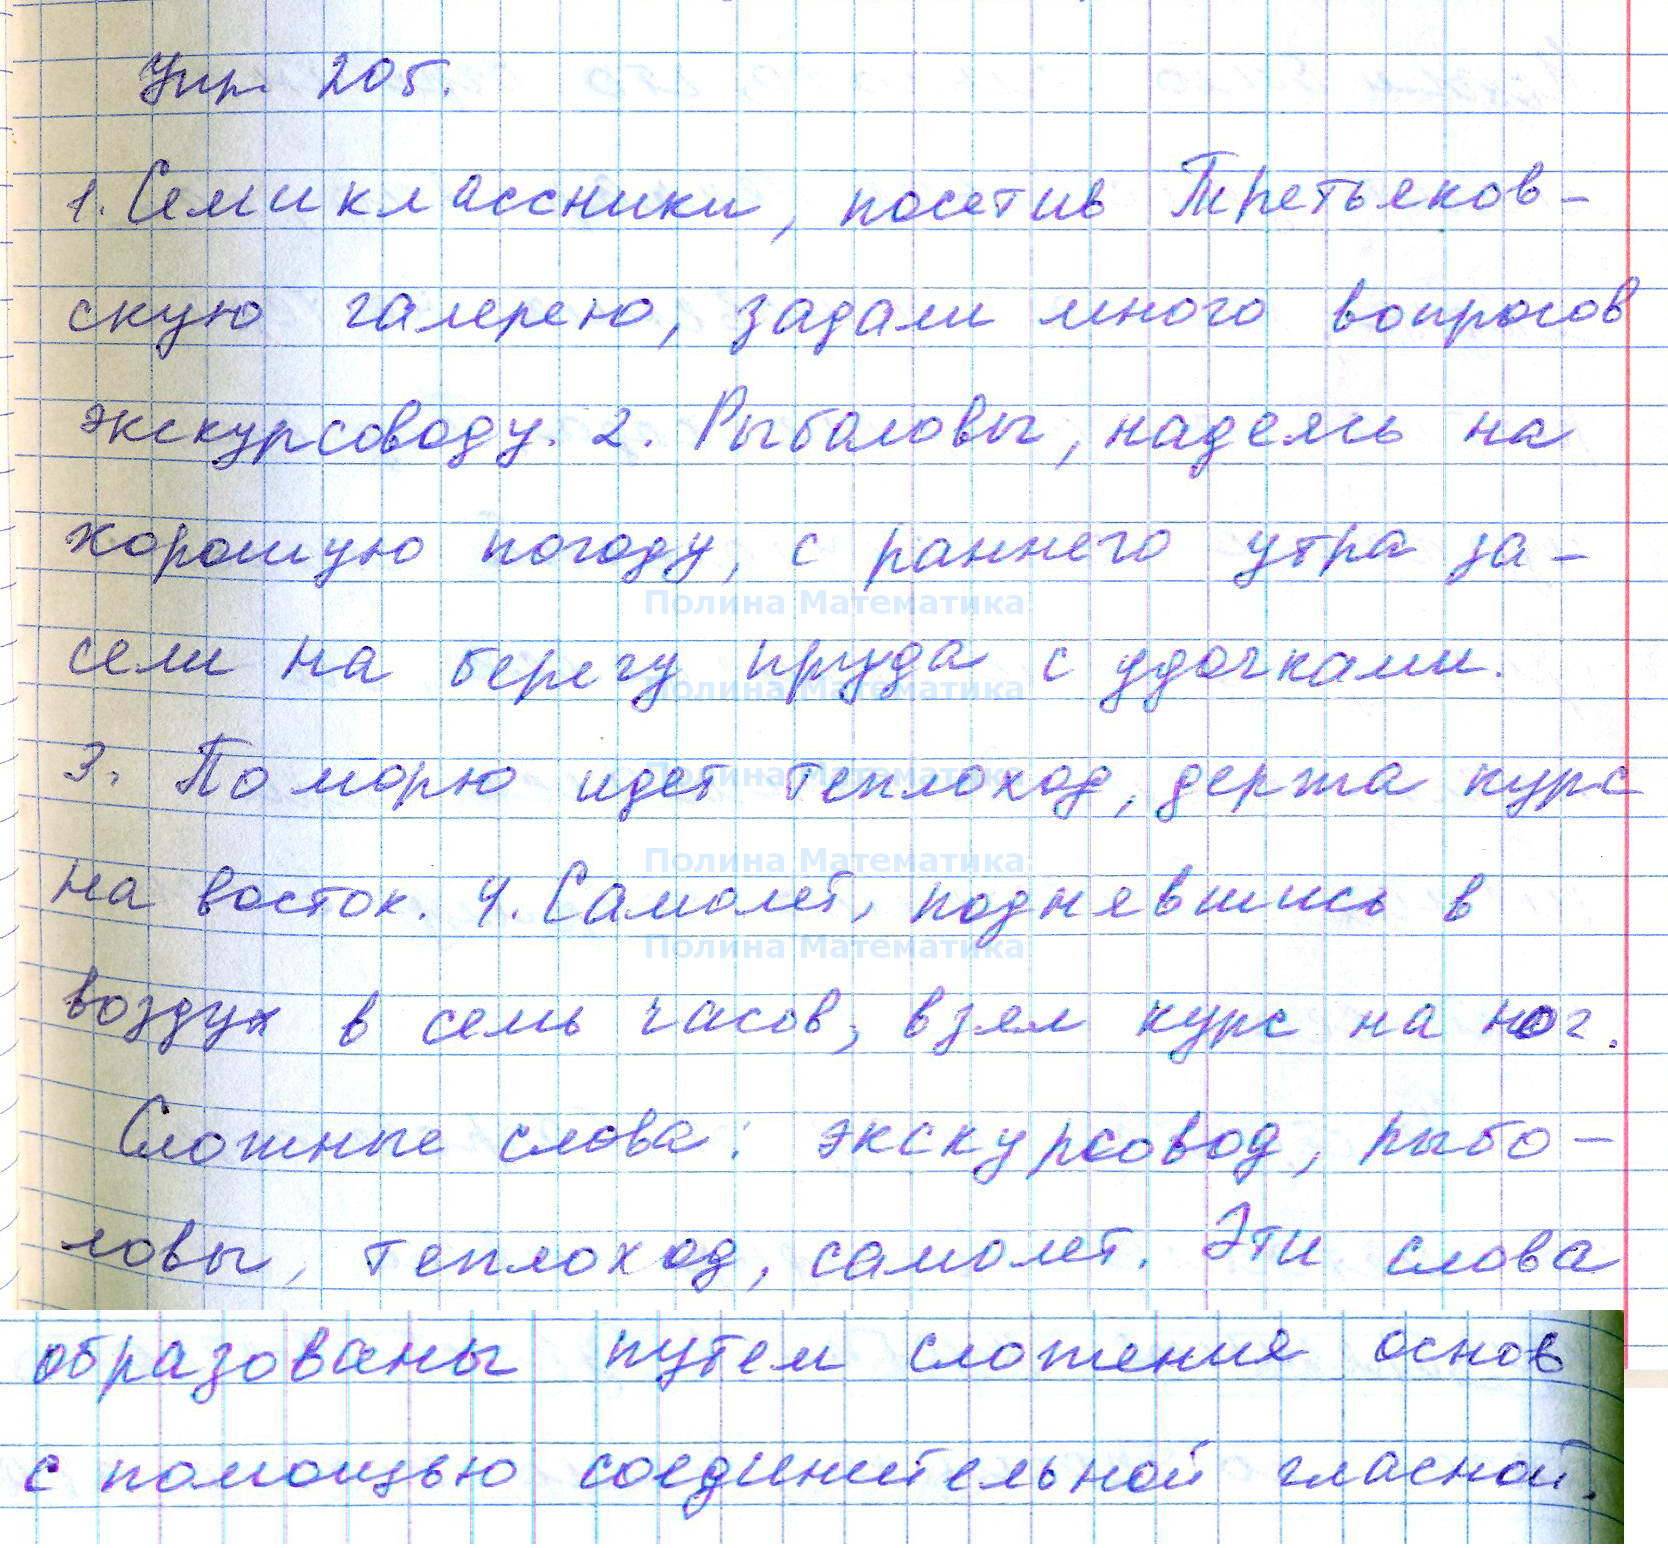 Упр 205.
1. Семиклассники, посетив Третьяков-
скую галерею, задали много вопросов
экскурсоводу. 2. Рыбаловы, надеясь на
хорошую погоду, с раннего утра за-
Полина Математика
сели на берегу пруда с удочками.
Полина Математика
3. По морю идет теплоход, держа курс
Полина Математика
на восток. 4. Самолет, поднявшись в
Полина Математика
Полина Математика
воздух в семь часов, взял курс на юг.
Сложные слова: экскурсовод, рыбо-
ловы, теплоход, самолет. Эти слова
образованы путем сложения основ
с помощью соединительной гласной.